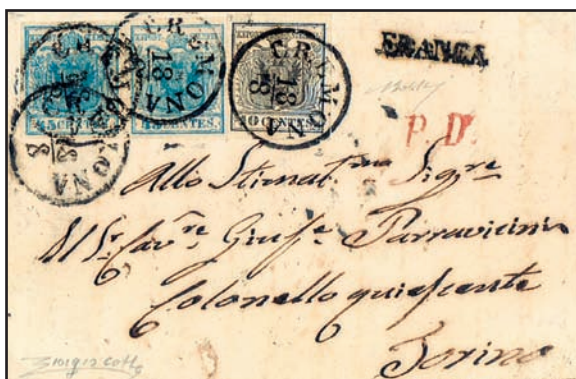 45 CENTES.
45 CENTES.
10 CENTES.
CREMONA
18
8
CREMONA
18
8
CREMONA
18
8
FRANCA
P. D.
Allo Stimat.mo Sigre
Il Sr. Cavre. Giuse. Parravicini
Colonello quiescente
Torino